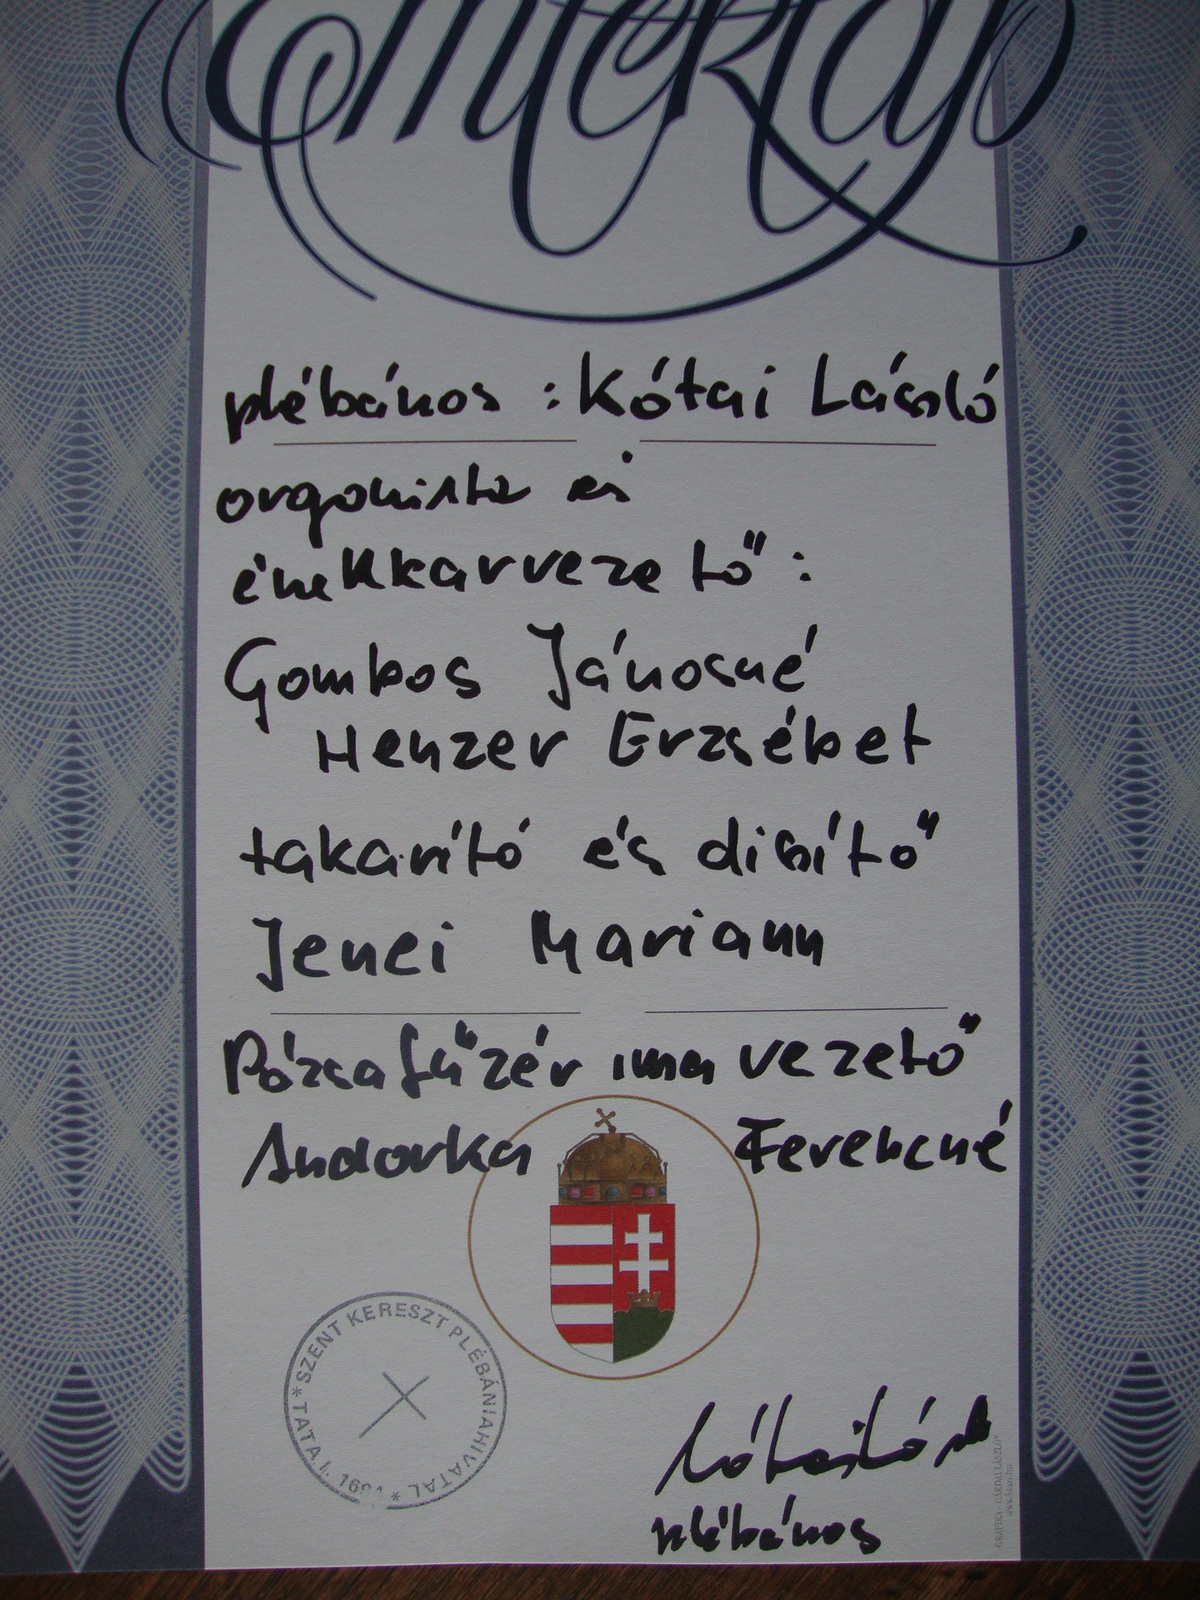 Emléklap
plébános : Kótai László
organista és
énekkarvezető :
Gombos Jánosné
Henzer Erzsébet
takarító és disítő
Jenei Mariann
Rózsafűzér ima vezető
Andorka Ferencné
* SZENT KERESZT PLÉBÁNIAHIVATAL * TATA I.
Kótai László
plébános